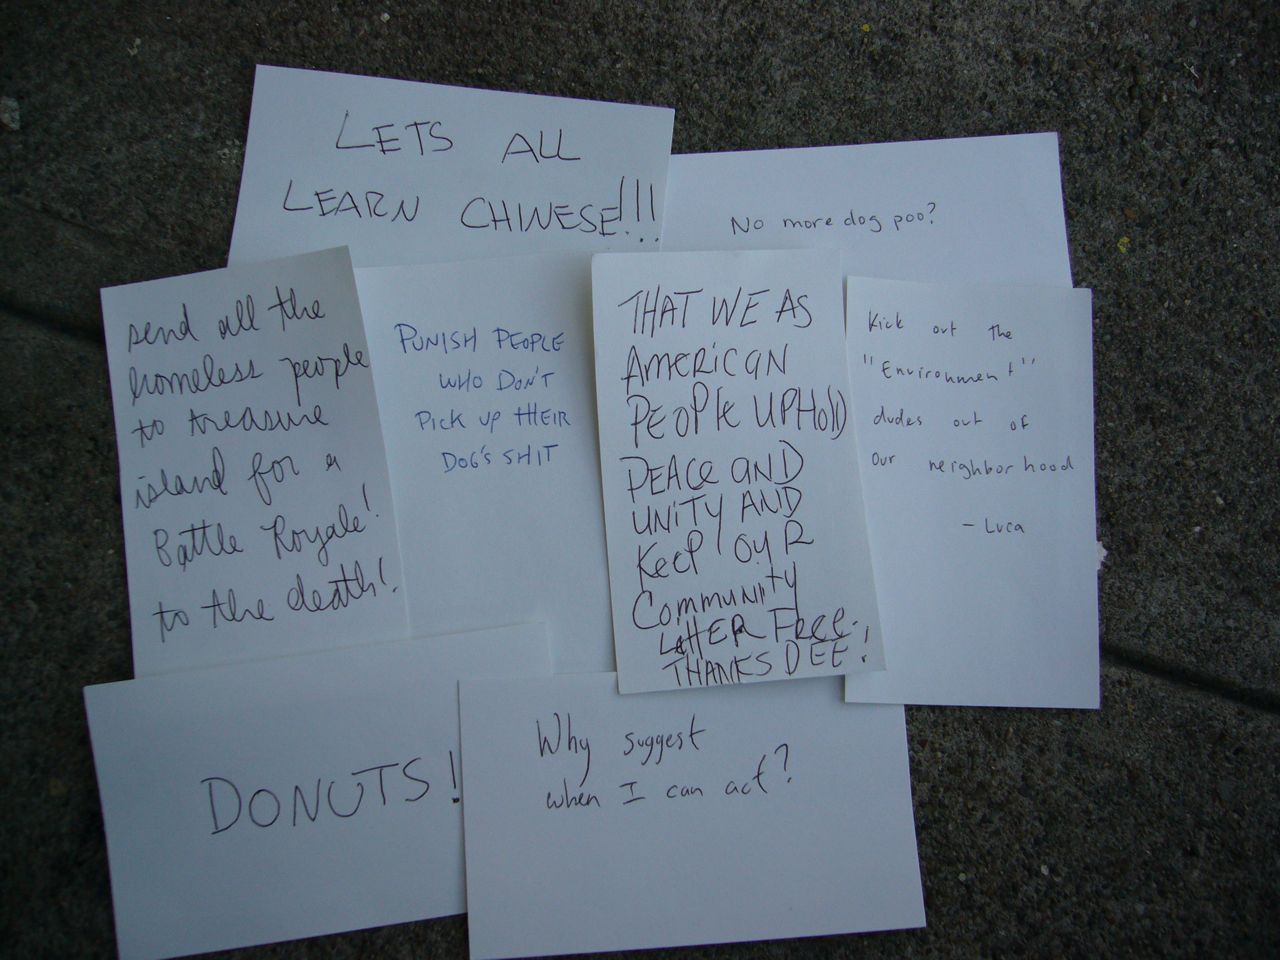 LETS ALL
LEARN CHINESE!!!
No more dog poo?
send all the
homeless people
to treasure
island for a
Battle Royale!
to the death!
PUNISH PEOPLE
WHO DON'T
PICK UP THEIR
DOG'S SHIT
THAT WE AS
AMERICAN
PEOPLE UPHOLD
PEACE AND
UNITY AND
KEEP OUR
COMMUNITY
LETTER FREE.
THANKS DEE!
Kick out the
"Environment"
dudes out of
our neighborhood
- Luca
DONUTS!
Why suggest
when I can act?